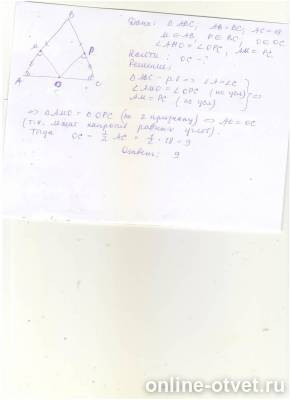 Дано: Δ ABC; AB=BC; AC=18
M ∈ AB, P ∈ BC, O ∈ AC
∠AMO = ∠OPC, AM = PC.
Найти:
OC - ?
Решение:
Δ ABC - р.б => ∠A=∠C
∠AMO = ∠OPC (по усл) =>
AM = PC (по усл)
=> ΔAMO = ΔOPC (по 2 признаку) => AO=OC
(т.к. лежат напротив равных углов).
Тогда OC = 1/2 AC = 1/2 · 18 = 9
Ответ: 9
B
M
P
A
O
C
online-otvet.ru